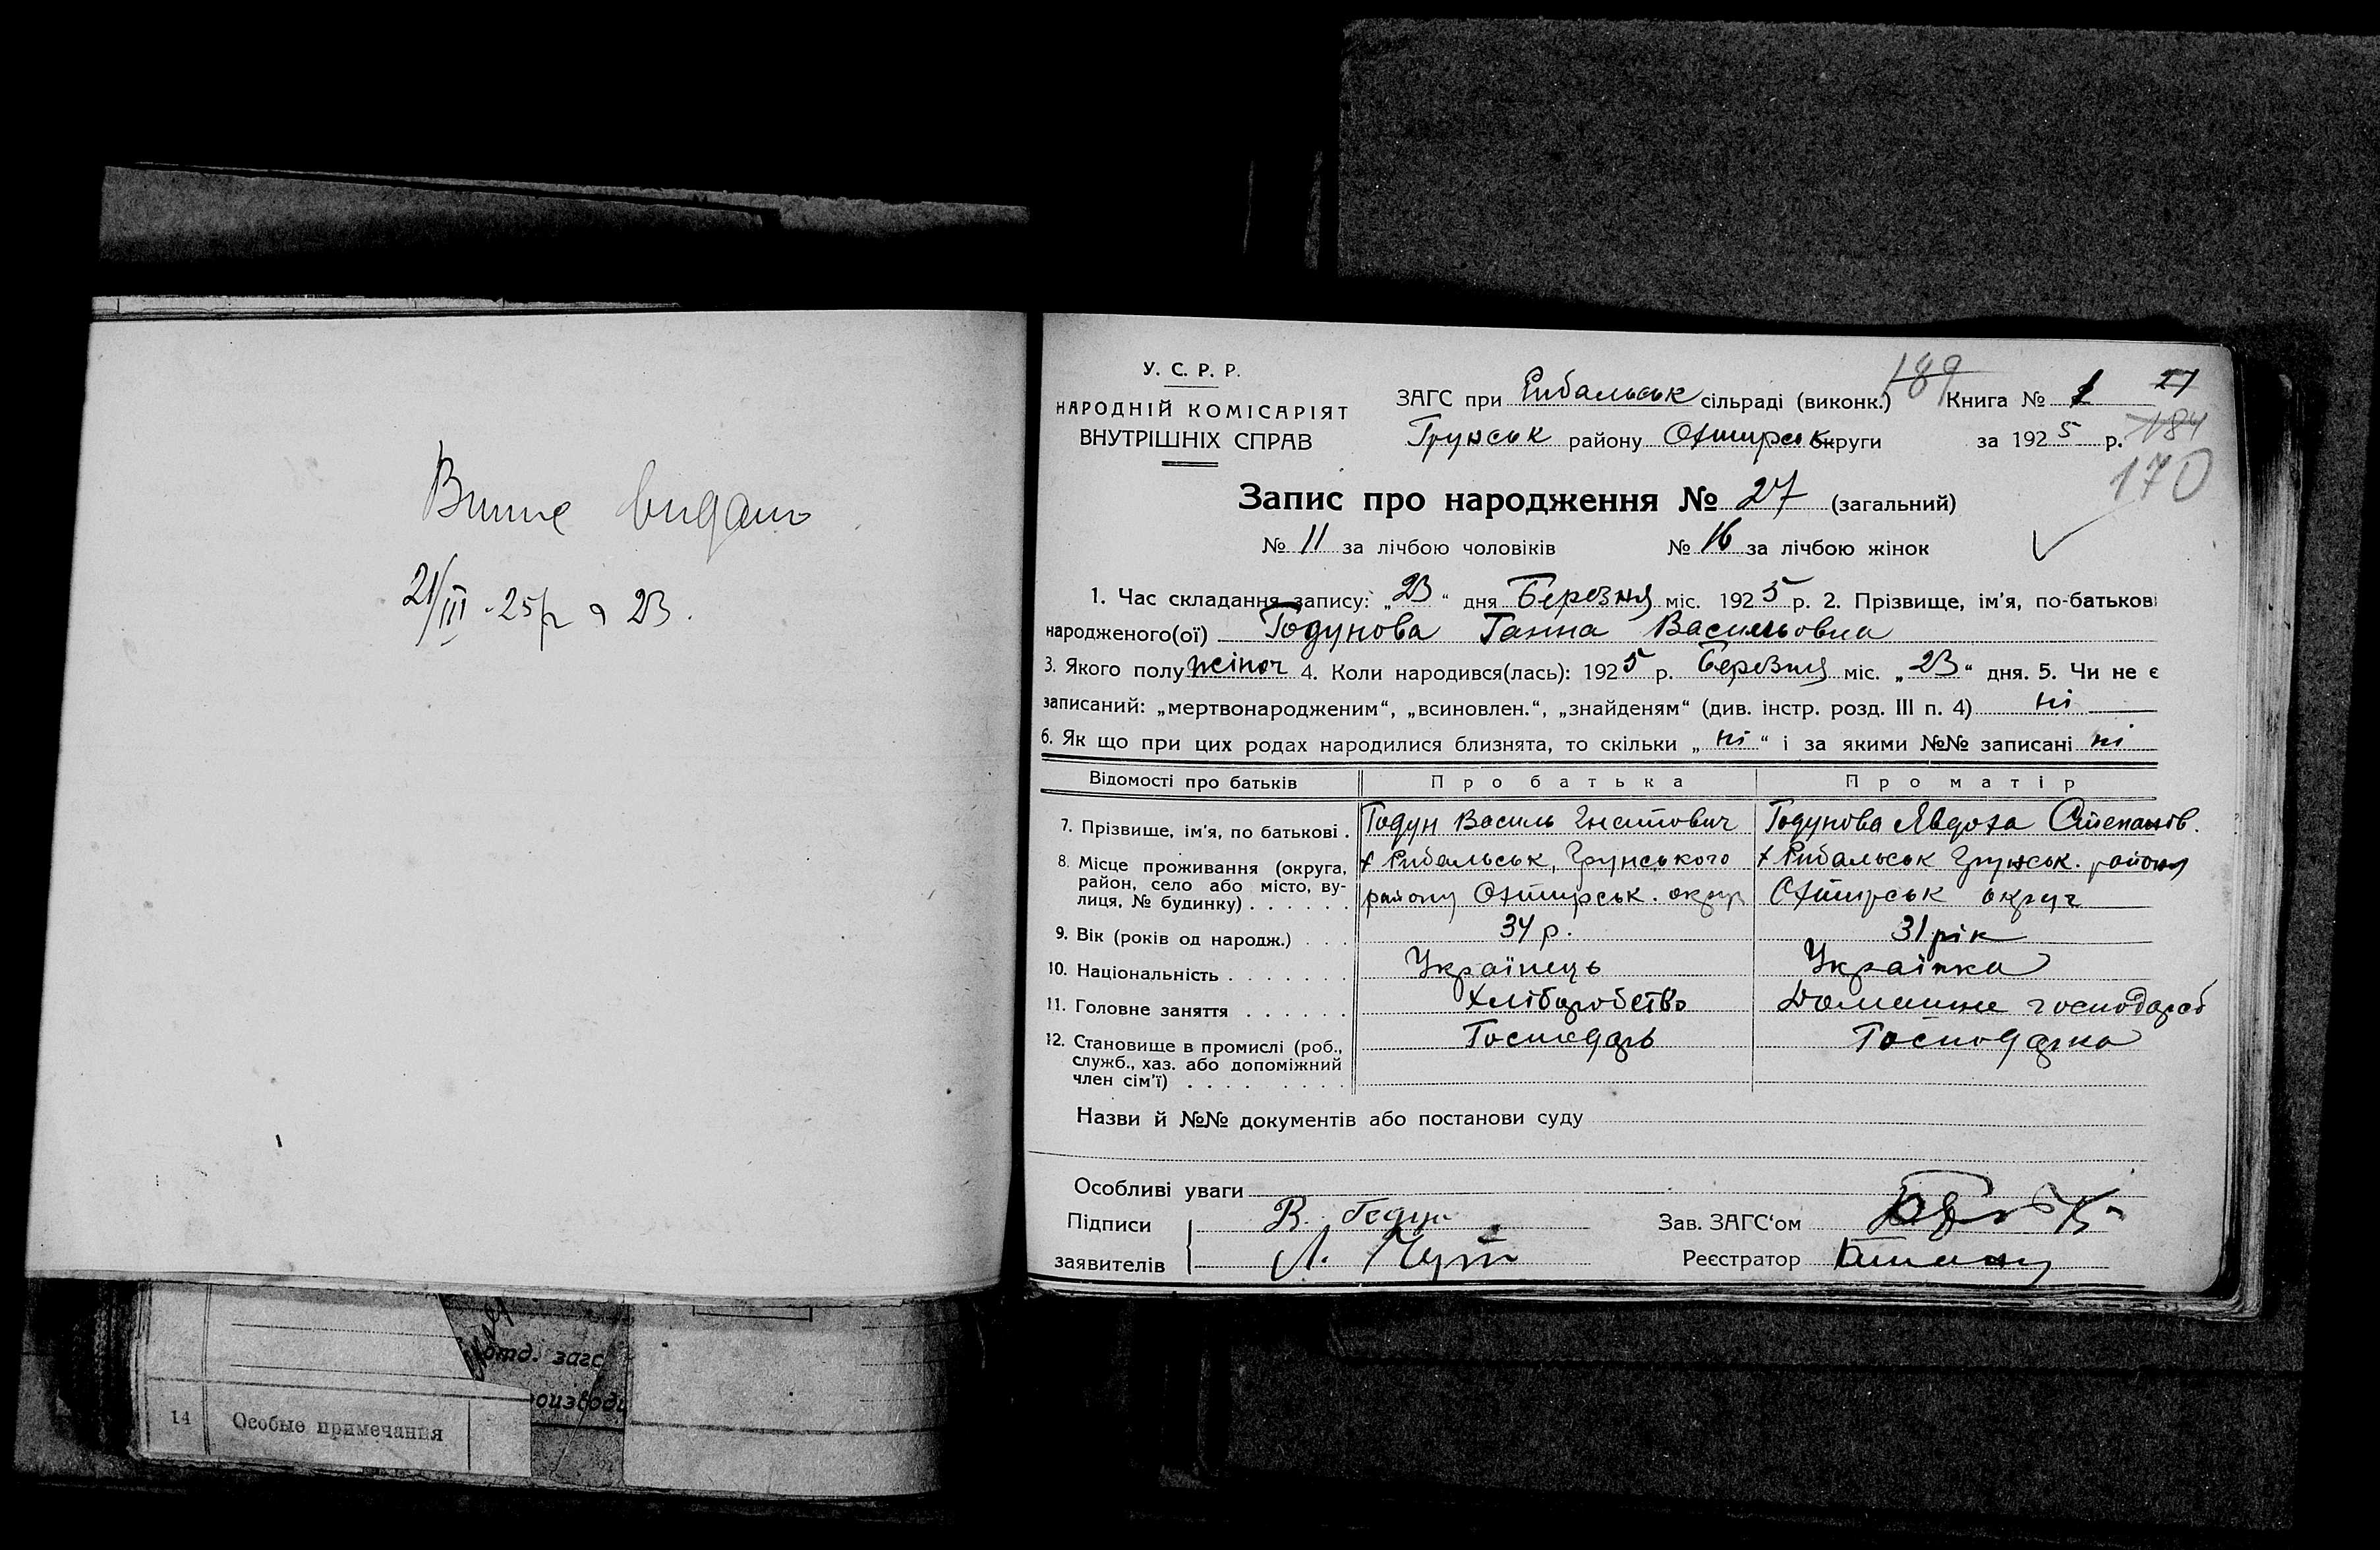 Випис видано
21/III - 25р 23.
отд. загс
14 Особые примечания
У. С. Р. Р.
НАРОДНІЙ КОМІСАРІЯТ
ВНУТРІШНІХ СПРАВ
ЗАГС при Рибальськ сільраді (виконк.) 189 Книга № 1 27
Грунськ району Охтирськ округи за 1925 р. 184
170
Запис про народження № 27 (загальний)
№ 11 за лічбою чоловіків № 16 за лічбою жінок
1. Час складання запису: „23“ дня Березня міс. 1925 р. 2. Прізвище, ім'я, по-батькові
народженого(ої) Годунова Ганна Васильовна
3. Якого полу жіноч 4. Коли народився(лась): 1925 р. Березня міс. „23“ дня. 5. Чи не є
записаний: „мертвонародженим“, „всиновлен.“, „знайденям“ (див. інстр. розд. III п. 4) ні
6. Як що при цих родах народилися близнята, то скільки „ні“ і за якими №№ записані ні
Відомості про батьків Про батька Про матір
7. Прізвище, ім'я, по батькові . Годун Василь Гнатович Годунова Явдоха Степанів.
8. Місце проживання (округа, район, село або місто, вулиця, № будинку) . . . . . . х Рибальськ, Грунського району Охтирськ. округ х Рибальськ Грунськ. району Охтирськ округи
9. Вік (років од народж.) . . . 34 р. 31 рік
10. Національність . . . . . . . Українець Українка
11. Головне заняття . . . . . . Хліборобство Домашне господарсб
12. Становище в промислі (роб., служб., хаз. або допоміжний член сім'ї) . . . . . . . . Господарь Господарка
Назви й №№ документів або постанови суду
Особливі уваги
Підписи В. Годун Зав. ЗАГС‘ом
заявителів Л. Реєстратор